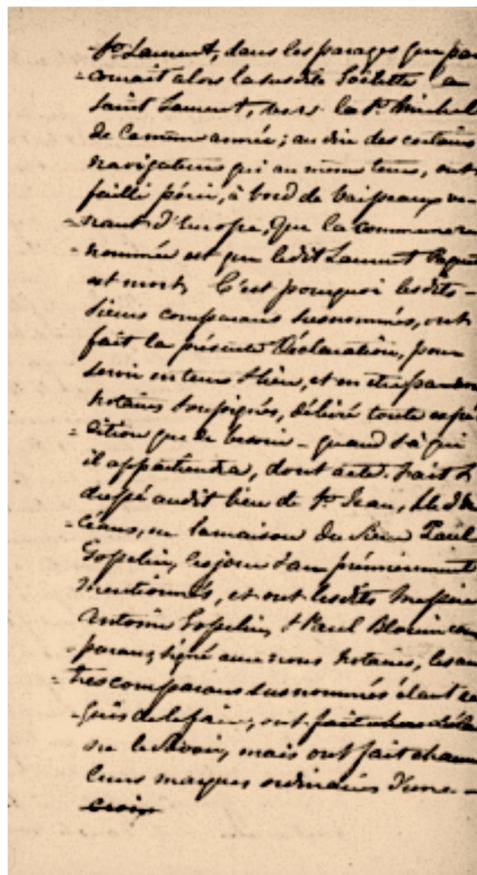 -St Laurent, dans les parages que par
-courait alors la susdite Goëlette a
Saint Laurent, vers la St Michel
de la même année; au dire des certains
navigateurs qui au même tems, ont
failli périr, à bord de vaisseaux ve-
-nant d'Europe, Que la commune re
-nommée est que ledit Laurent Paquet
est mort, C'est pourquoi lesdits
sieurs comparans susnommés, ont
fait la présente Déclaration, pour
servir en tems & lieu, et en être par
notaires soussignés, délivré toute expé
-dition que de besoin - quand & à qui
il appartiendra, dont acte. Fait &
dressé audit lieu de St Jean, Isle d'Or
-léans, en la maison du Sieur Paul
Gosselin, les jour & an prémièrement
mentionnés, et ont lesdits Messire
Antoine Gosselin, & Paul Blouin com
parans, signé avec nous notaires, les au
-tres comparans susnommés étant re
-quis de le faire, ont décla
ne le savoir, mais ont fait chacun
leurs marques ordinaires d'une -
croix